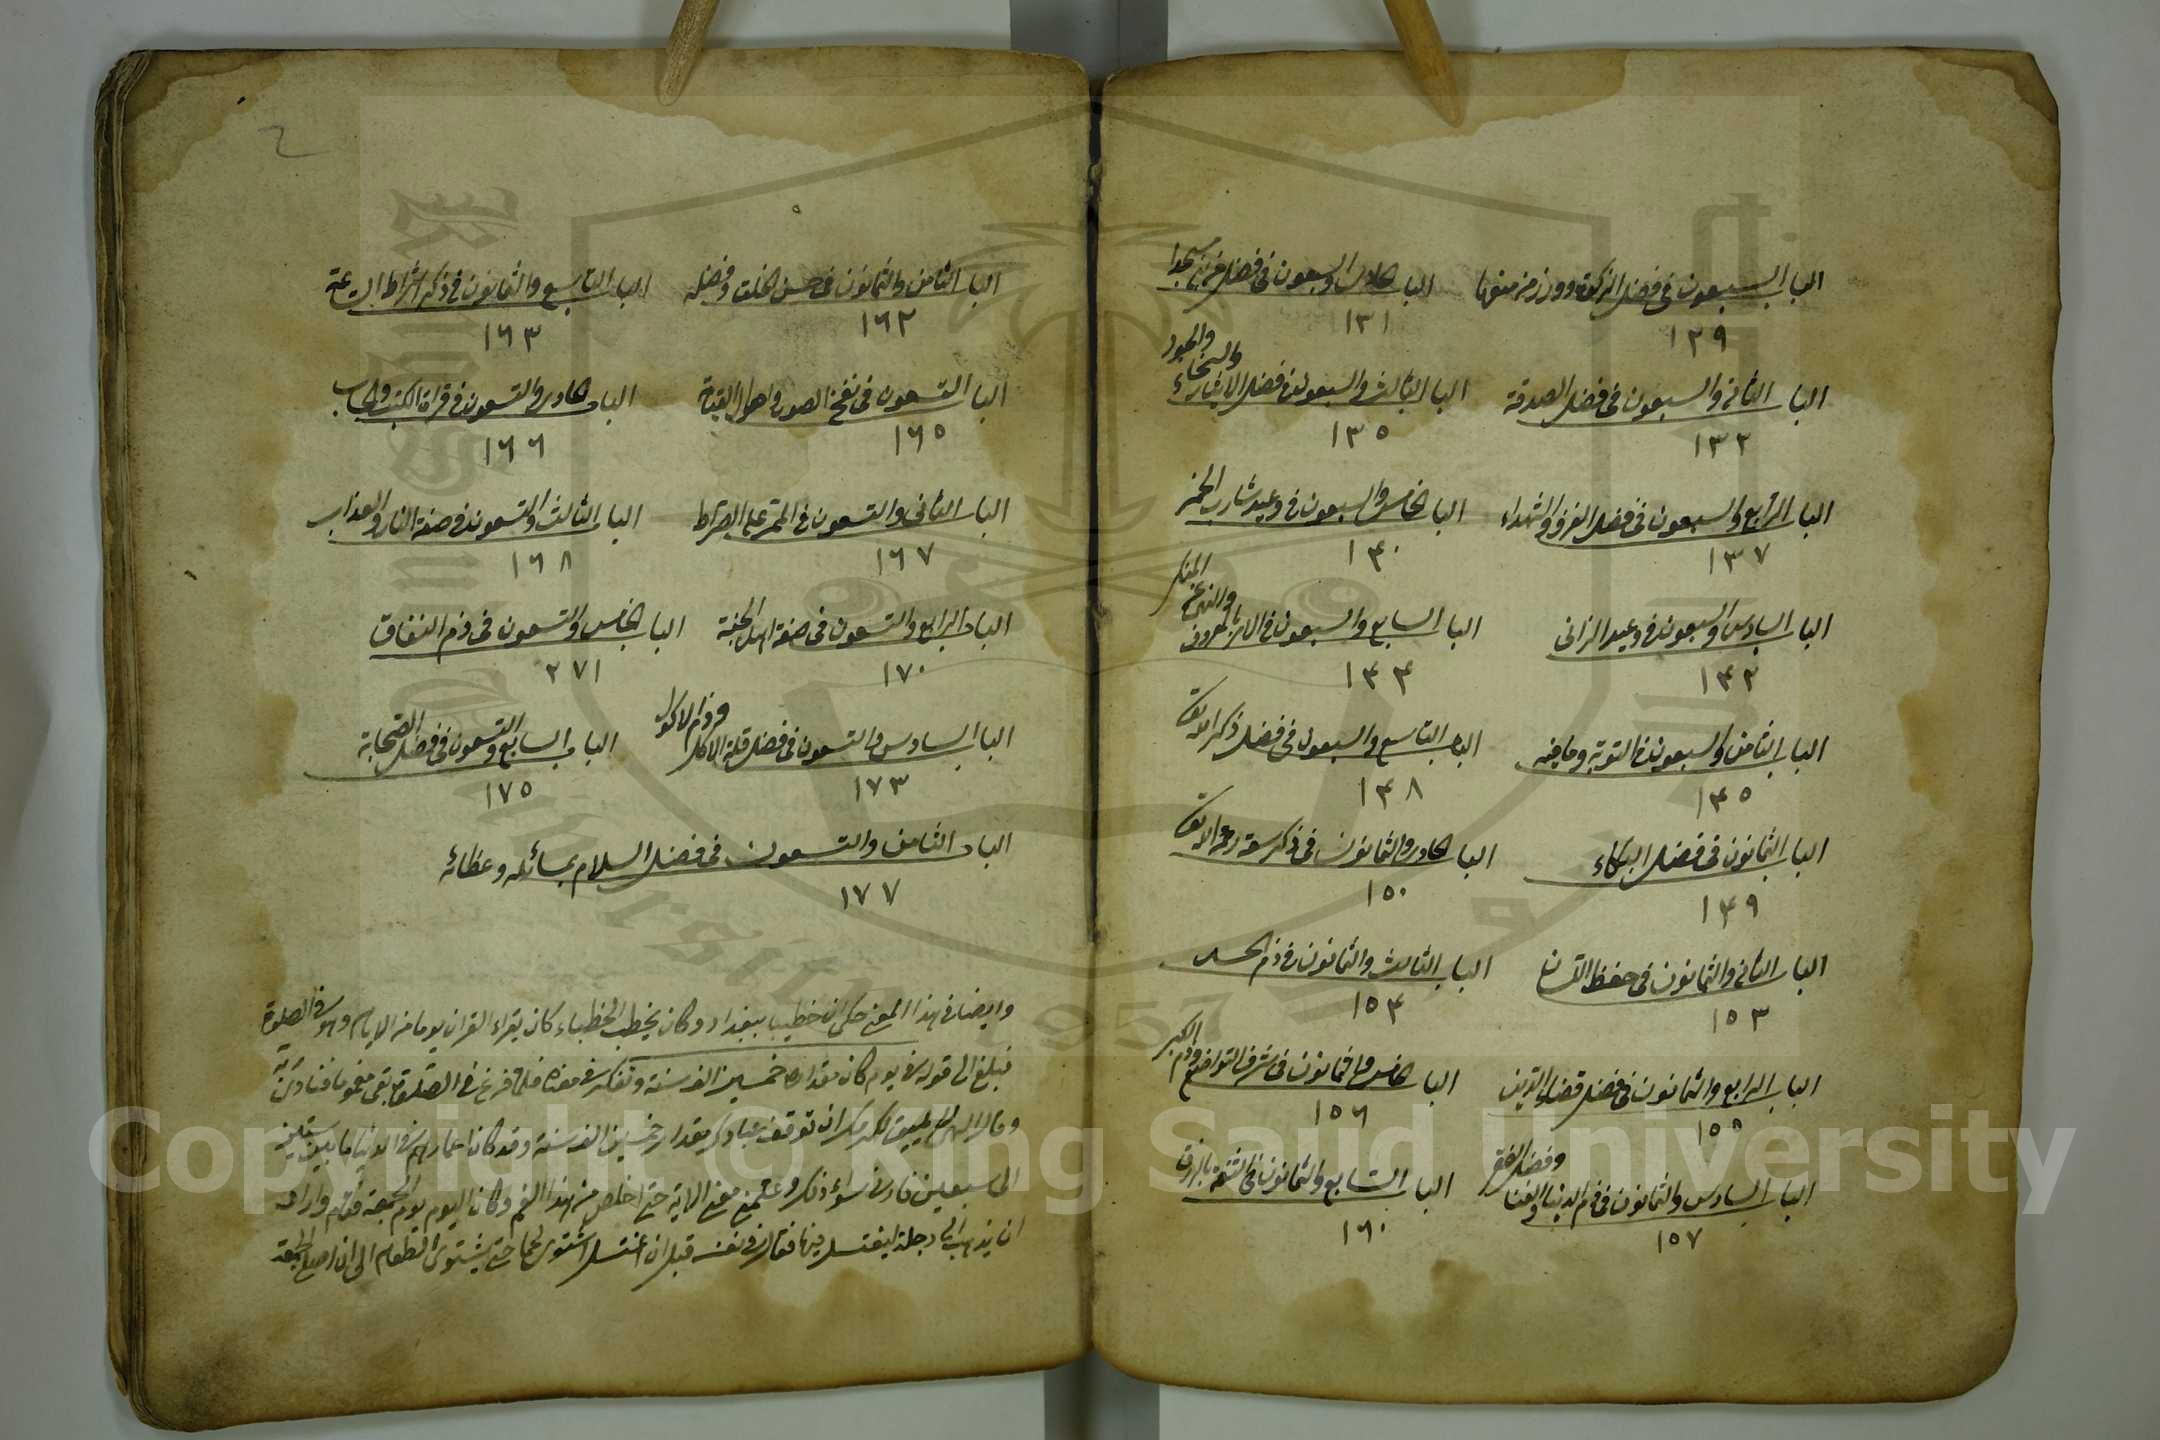 الباب السبعون في فضل الزكوة ووزر من منعها
١٢٩
الباب الحادي والسبعون في فضل من بنى مسجدا
١٣١
الباب الثاني والسبعون في فضل الصدقة
١٣٢
الباب الثالث والسبعون في فضل الايثار
والسخاء والجود
١٣٥
الباب الرابع والسبعون في فضل الغزو والشهداء
١٣٧
الباب الخامس والسبعون في وعيد شارب الخمر
١٤٠
الباب السادس والسبعون في وعيد الزاني
١٤٢
الباب السابع والسبعون في الامر بالمعروف
والنهي عن المنكر
١٤٤
الباب الثامن والسبعون في التوبة وما فيه
١٤٥
الباب التاسع والسبعون في فضل ذكر الله تعالى
١٤٨
الباب الثمانون في فضل البكاء
١٤٩
الباب الحادي والثمانون في ذكر سعة رحمة الله تعالى
١٥٠
الباب الثاني والثمانون في حفظ اللسان
١٥٣
الباب الثالث والثمانون في ذم الحسد
١٥٤
الباب الرابع والثمانون في فضل قضاء الدين
١٥٥
الباب الخامس والثمانون في شرف التواضع
وذم الكبر
١٥٦
الباب السادس والثمانون في ذم الدنيا والغنا
وفضل الفقر
١٥٧
الباب السابع والثمانون في الثقة بالرزق
١٦٠
الباب الثامن والثمانون في حسن الخلق وفضله
١٦٢
الباب التاسع والثمانون في ذكر اشراط الساعة
١٦٣
الباب التسعون في نفخ الصور واهوال القيامة
١٦٥
الباب الحادي والتسعون في قراة الكتب والحساب
١٦٦
الباب الثاني والتسعون في الممر على الصراط
١٦٧
الباب الثالث والتسعون في صفة النار والعذاب
١٦٨
الباب الرابع والتسعون في صفة اهل الجنة
١٧٠
الباب الخامس والتسعون في ذم النفاق
٢٧١
الباب السادس والتسعون في فضل قلة الاكل
وذم الاكول
١٧٣
الباب السابع والتسعون في فضل الصحابة
١٧٥
الباب الثامن والتسعون في فضل السلام بسائله وعظائه
١٧٧
وايضا في هذا المعنى حكي ان خطيبا ببغداد وكان يخطب الخطباء كان يقراء القران يوما من الايام وهو في الصلوة
فبلغ الى قوله في يوم كان مقداره خمسين الف سنة وتفكر في معناه فلما فرغ من الصلوة بقي مغموما فنادى ربه
وقال الهي يليق لكرمك ان توقف عبادك مقدار خمسين الف سنة وقد كان اعمارهم في الدنيا ما بين ستين
الى سبعين فارني سواء ذلك وعلمني معنى الاية حتى اخلص من هذا الغم وكان اليوم يوم الجمعة فقام واراد
ان يذهب الى دجلة ليغتسل فيها فقال في نفسه قبل ان اغتسل اشتري لحما حتى يشتوى الطعام الى ان اصلي الجمعة
Copyright © King Saud University
King Saud University
1957